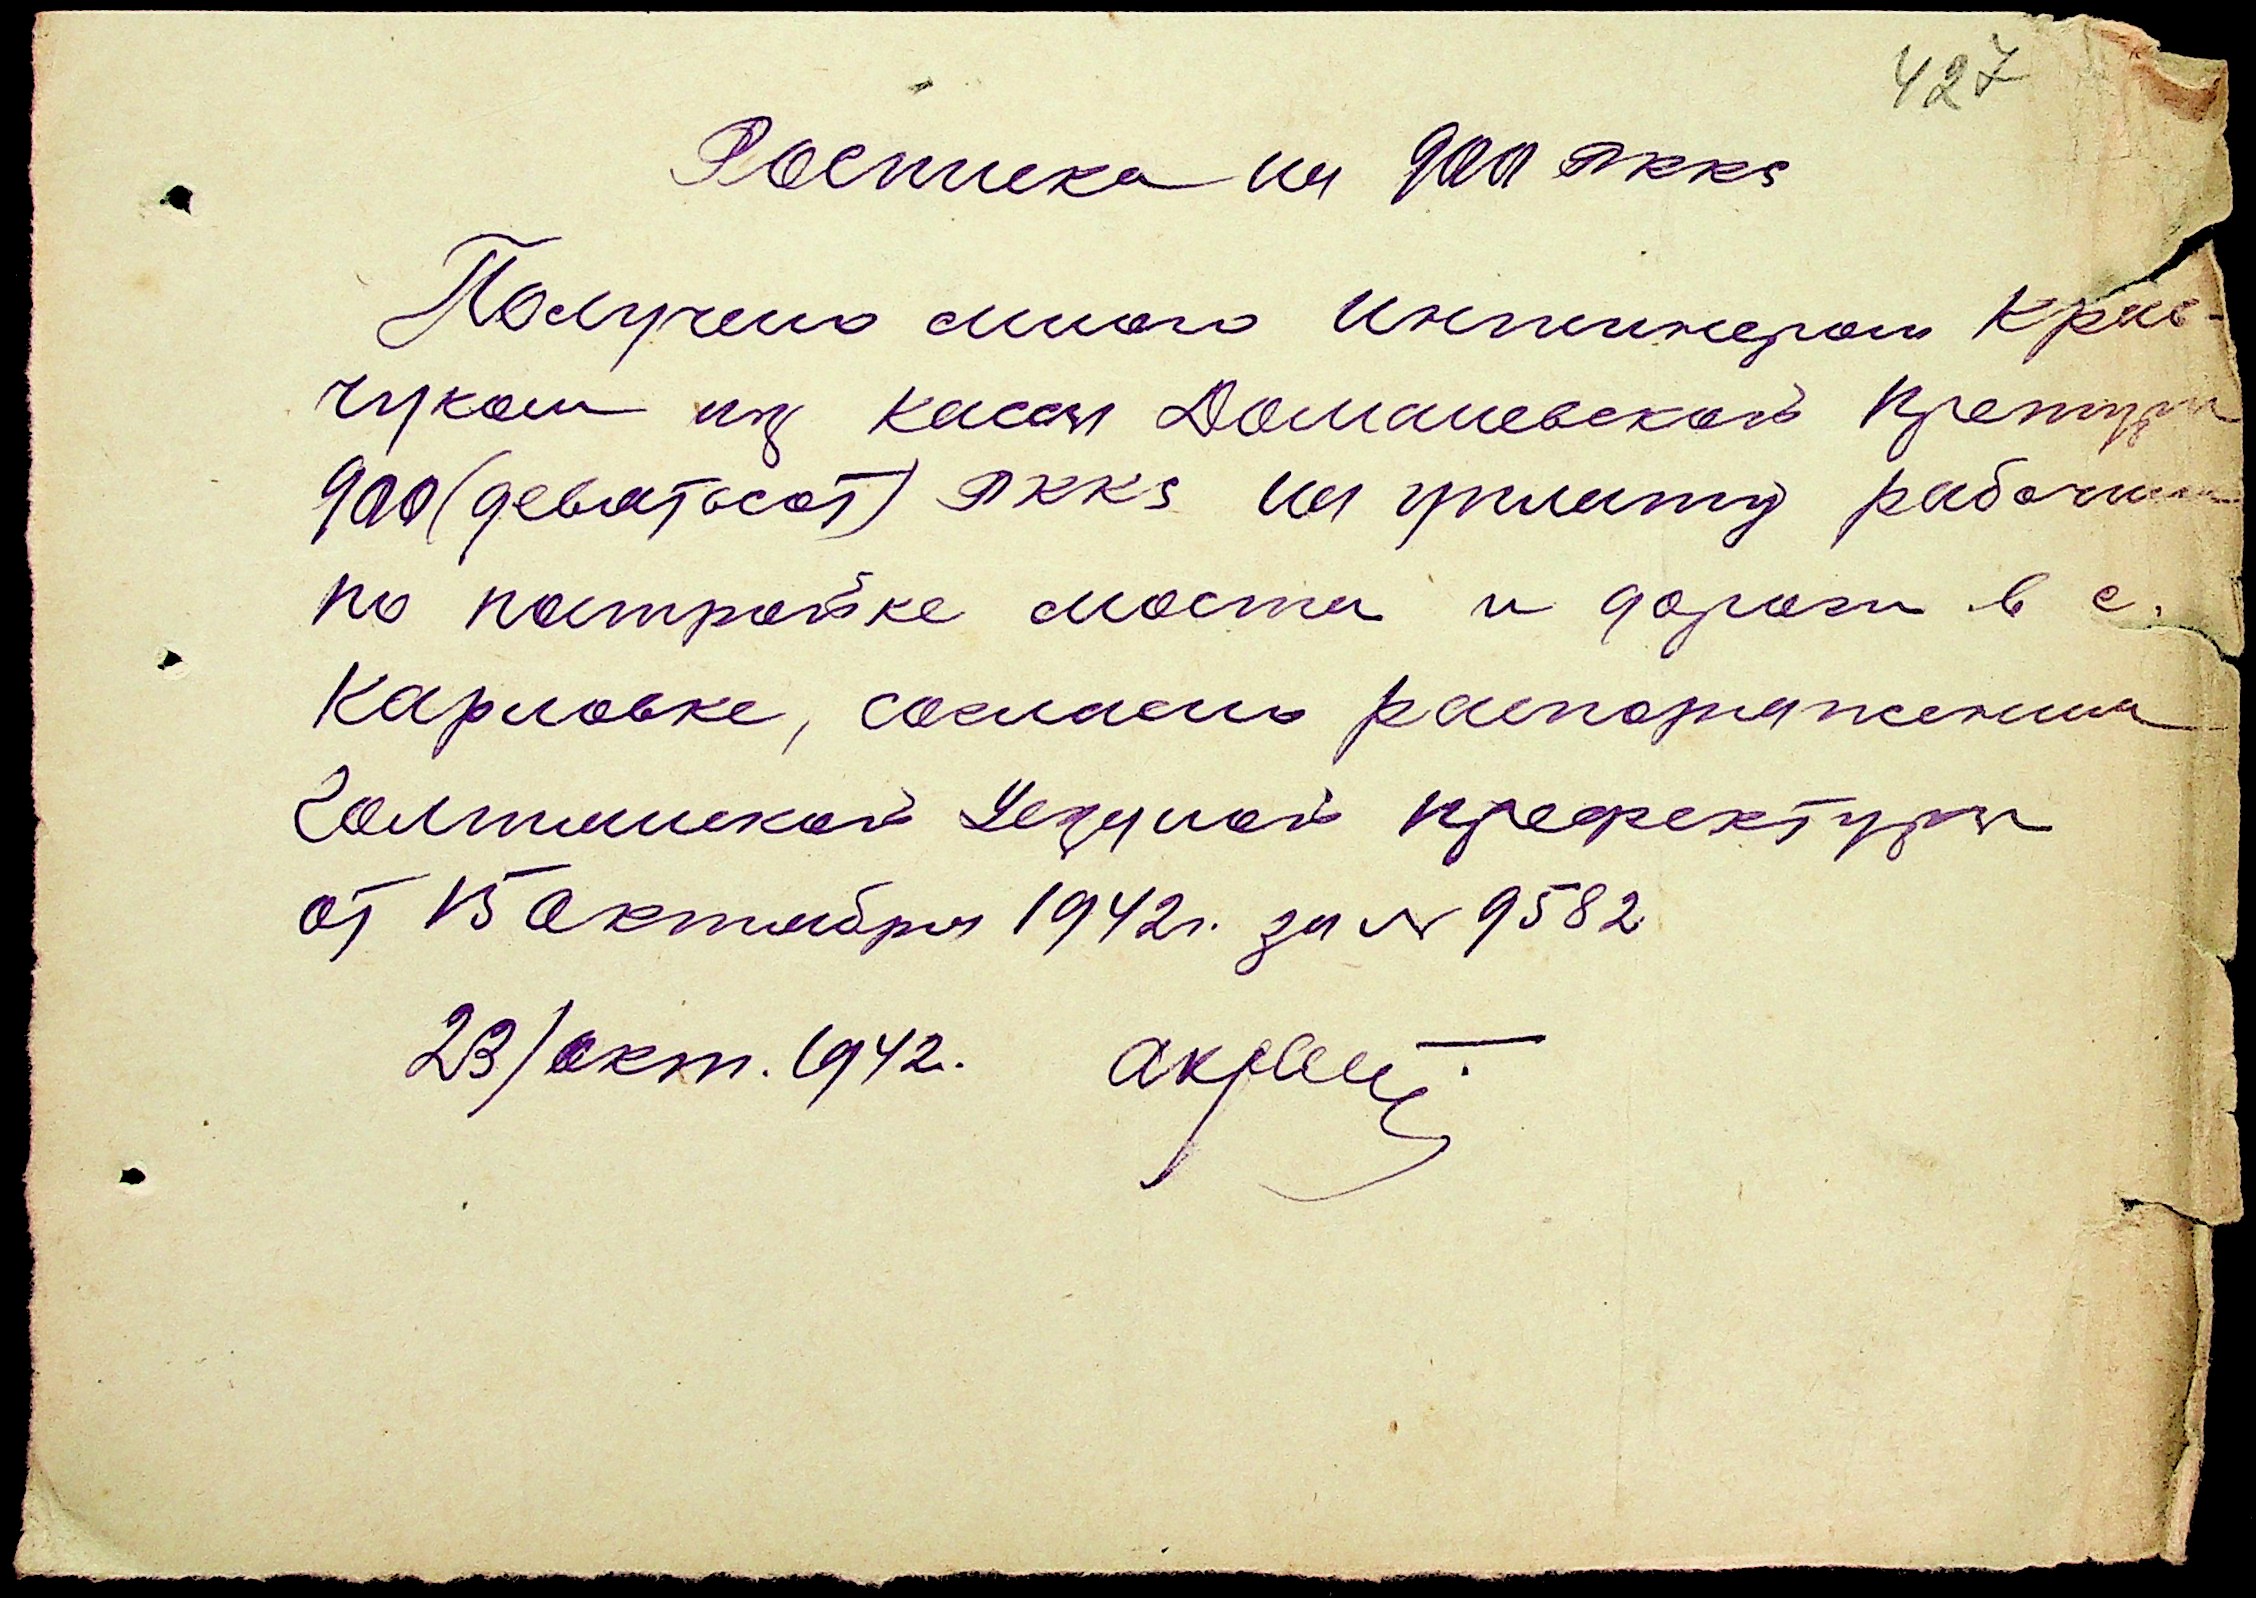 427
Росписка на 900 RKKS
Получено мною инжинером Крив-
чуком из кассы Доманевской претуры
900 (девятьсот) RKKS на уплату рабочим
по постройке моста и дороги в с.
Карловке, согласно распоряжения
Голтянской Уездной префектуры
от 15 октября 1942г. за № 9582
23/окт. 1942.